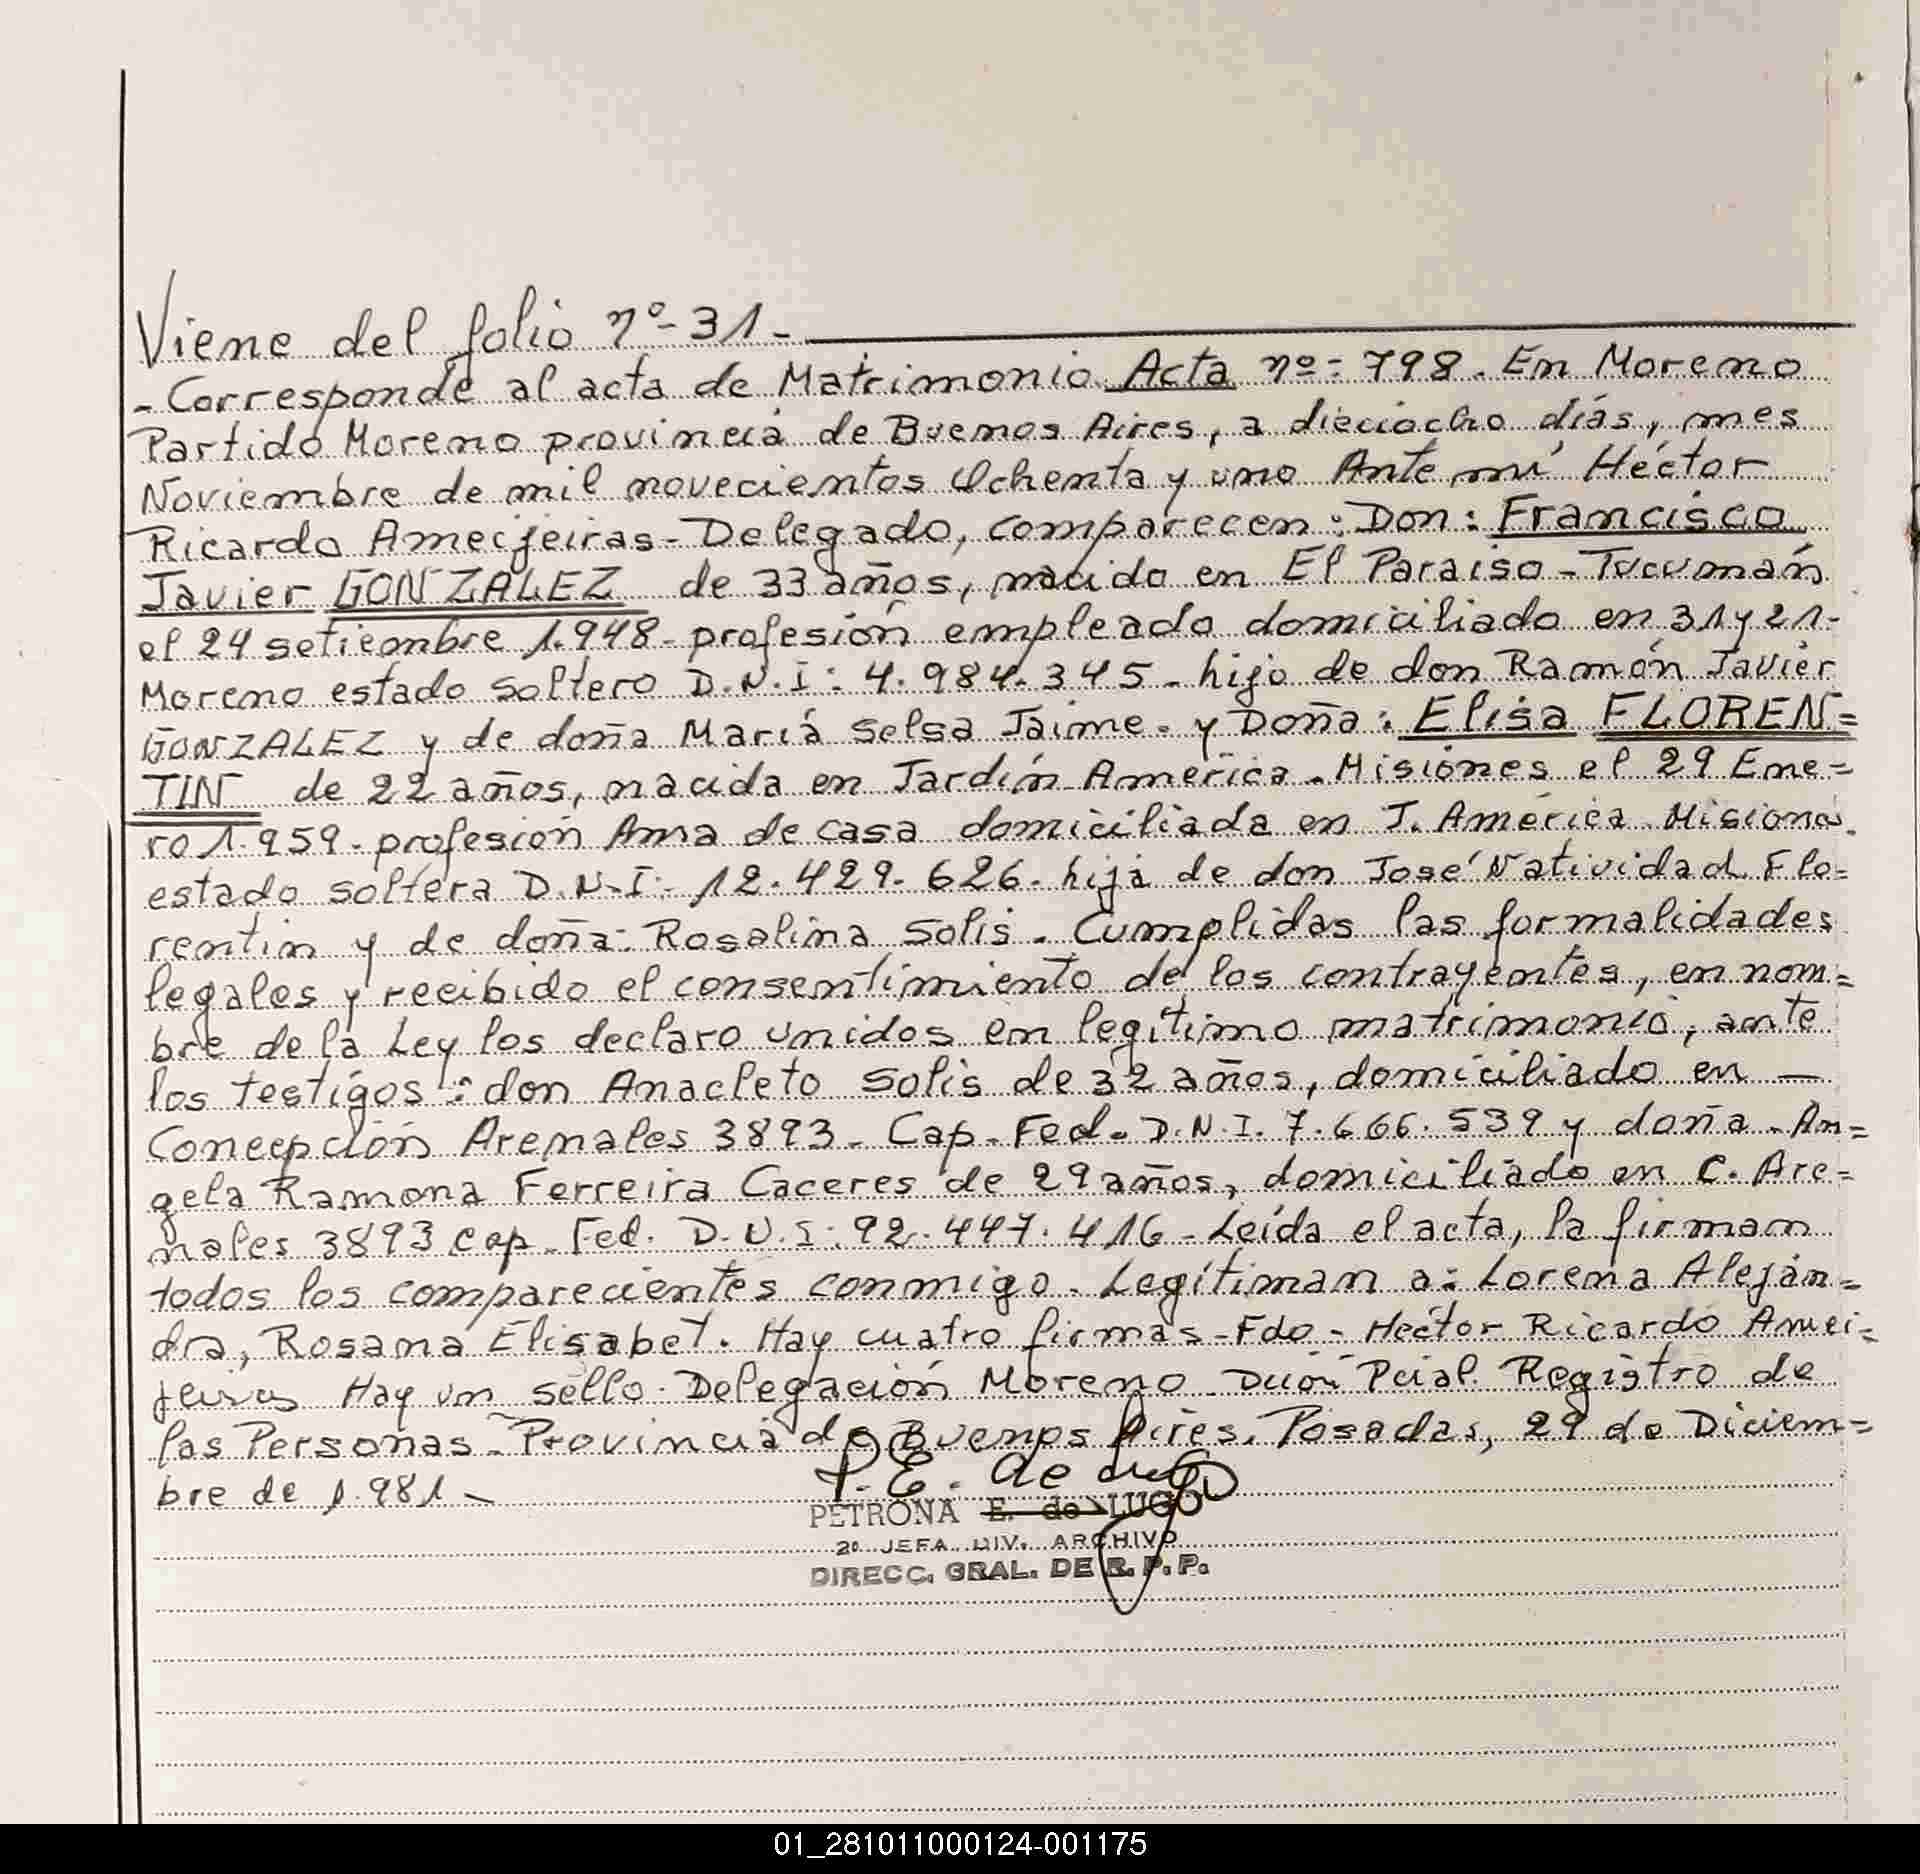 Viene del folio nº-31-
- Corresponde al acta de Matrimonio Acta nº: 798. En Moreno
Partido Moreno provincia de Buenos Aires, a dieciocho días, mes
Noviembre de mil novecientos Ochenta y uno Ante mí Héctor
Ricardo Ameijeiras - Delegado, comparecen: Don: Francisco
Javier GONZALEZ de 33 años, nacido en El Paraiso - Tucumán
el 24 setiembre 1.948 - profesión empleado domiciliado en 31 y 21-
Moreno estado soltero D.N.I: 4.984.345 - hijo de don Ramón Javier
GONZALEZ y de doña María Selsa Jaime. y Doña: Elisa FLOREN=
TIN de 22 años, nacida en Jardín América - Misiones el 29 Ene=
ro 1.959 - profesión Ama de casa domiciliada en J. América Misiones.
estado soltera D.N.I: 12.429.626. hija de don José Natividad Flo=
rentin y de doña: Rosalina Solis. Cumplidas las formalidades
legales y recibido el consentimiento de los contrayentes, en nom=
bre de la Ley los declaro unidos en legítimo matrimonio, ante
los testigos: don Anacleto Solis de 32 años, domiciliado en —
Concepción Arenales 3893 - Cap. Fed. D.N.I. 7.666.539 y doña An=
gela Ramona Ferreira Caceres de 29 años, domiciliado en C. Are=
nales 3893 Cap. Fed. D.N.I: 92.447.416 - Leída el acta, la firman
todos los comparecientes conmigo. Legitiman a: Lorena Aleján=
dra, Rosana Elisabet. Hay cuatro firmas - Fdo - Hector Ricardo Amei=
jeiras Hay un sello. Delegación Moreno Dción Pcial. Registro de
las Personas - Provincia de Buenos Aires. Posadas, 29 de Diciem=
bre de 1.981 -
P. E. de Lugo
PETRONA E. de LUGO
2º JEFA DIV. ARCHIVO
DIRECC. GRAL. DE R. P. P.
01_281011000124-001175